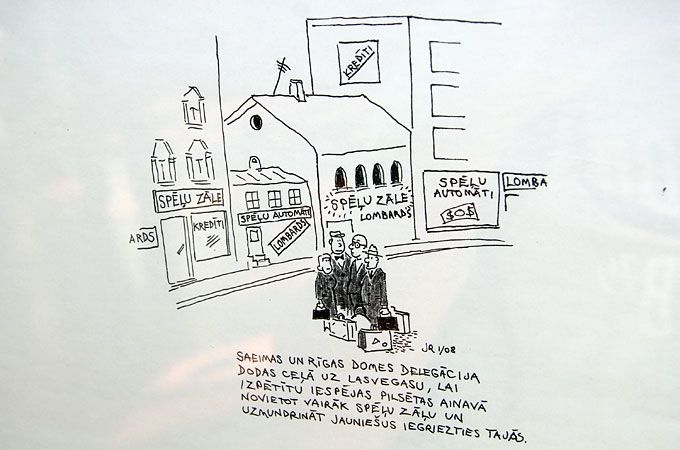 KREDĪTI
SPĒĻU ZĀLE
KREDĪTI
ARDS
SPĒĻU AUTOMĀTI
LOMBARDS
SPĒĻU ZĀLE
LOMBARDS
SPĒĻU
AUTOMĀTI
$O$
LOMBA
JR 1/08
SAEIMAS UN RĪGAS DOMES DELEGĀCIJA
DODAS CEĻĀ UZ LASVEGASU, LAI
IZPĒTĪTU IESPĒJAS PILSĒTAS AINAVĀ
NOVIETOT VAIRĀK SPĒĻU ZĀĻU UN
UZMUNDRINĀT JAUNIEŠUS IEGRIEZTIES TAJĀS.